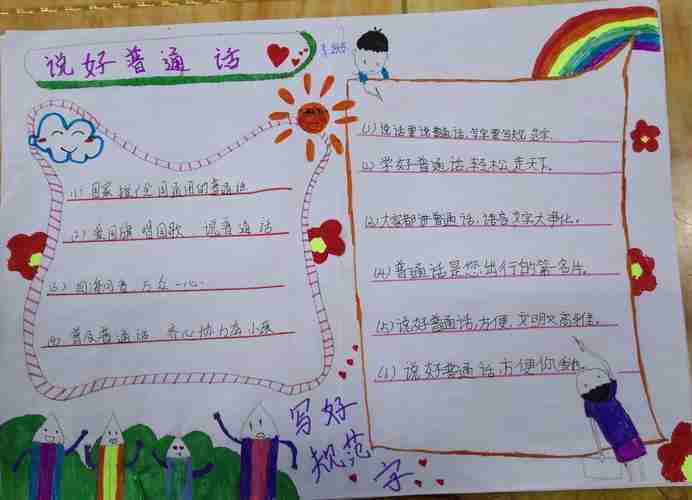 说好普通话
(1) 国家推广全国通用的普通话
(2) 爱国旗 唱国歌 说普通话
(3) 同讲国音 万众一心.
(4) 普及普通话 齐心协力奔小康
写好
规范
字
(1) 说话要说普通话,写字要写规范字.
(2) 学好普通话,轻松走天下.
(3) 大家都讲普通话,语言文字大事化。
(4) 普通话是您出行的第一名片。
(5) 说好普通话,方便,文明又高雅。
说好普通话方便你